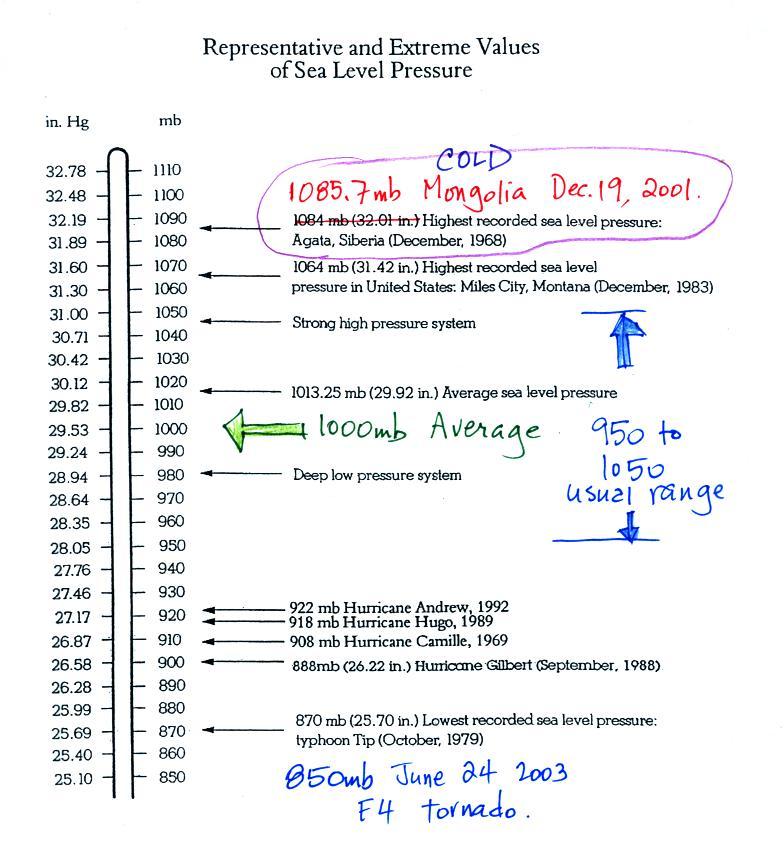 Representative and Extreme Values
of Sea Level Pressure
in. Hg mb
COLD
32.78 1110
1085.7mb Mongolia Dec. 19, 2001.
32.48 1100
32.19 1090
1084 mb (32.01 in.) Highest recorded sea level pressure:
31.89 1080
Agata, Siberia (December, 1968)
31.60 1070
1064 mb (31.42 in.) Highest recorded sea level
31.30 1060
pressure in United States: Miles City, Montana (December, 1983)
31.00 1050
Strong high pressure system
30.71 1040
30.42 1030
30.12 1020
1013.25 mb (29.92 in.) Average sea level pressure
29.82 1010
29.53 1000
1000mb Average
950 to
1050
usual range
29.24 990
28.94 980
Deep low pressure system
28.64 970
28.35 960
28.05 950
27.76 940
27.46 930
922 mb Hurricane Andrew, 1992
27.17 920
918 mb Hurricane Hugo, 1989
26.87 910
908 mb Hurricane Camille, 1969
26.58 900
888mb (26.22 in.) Hurricane Gilbert (September, 1988)
26.28 890
25.99 880
870 mb (25.70 in.) Lowest recorded sea level pressure:
25.69 870
typhoon Tip (October, 1979)
25.40 860
25.10 850
850mb June 24 2003
F4 tornado.